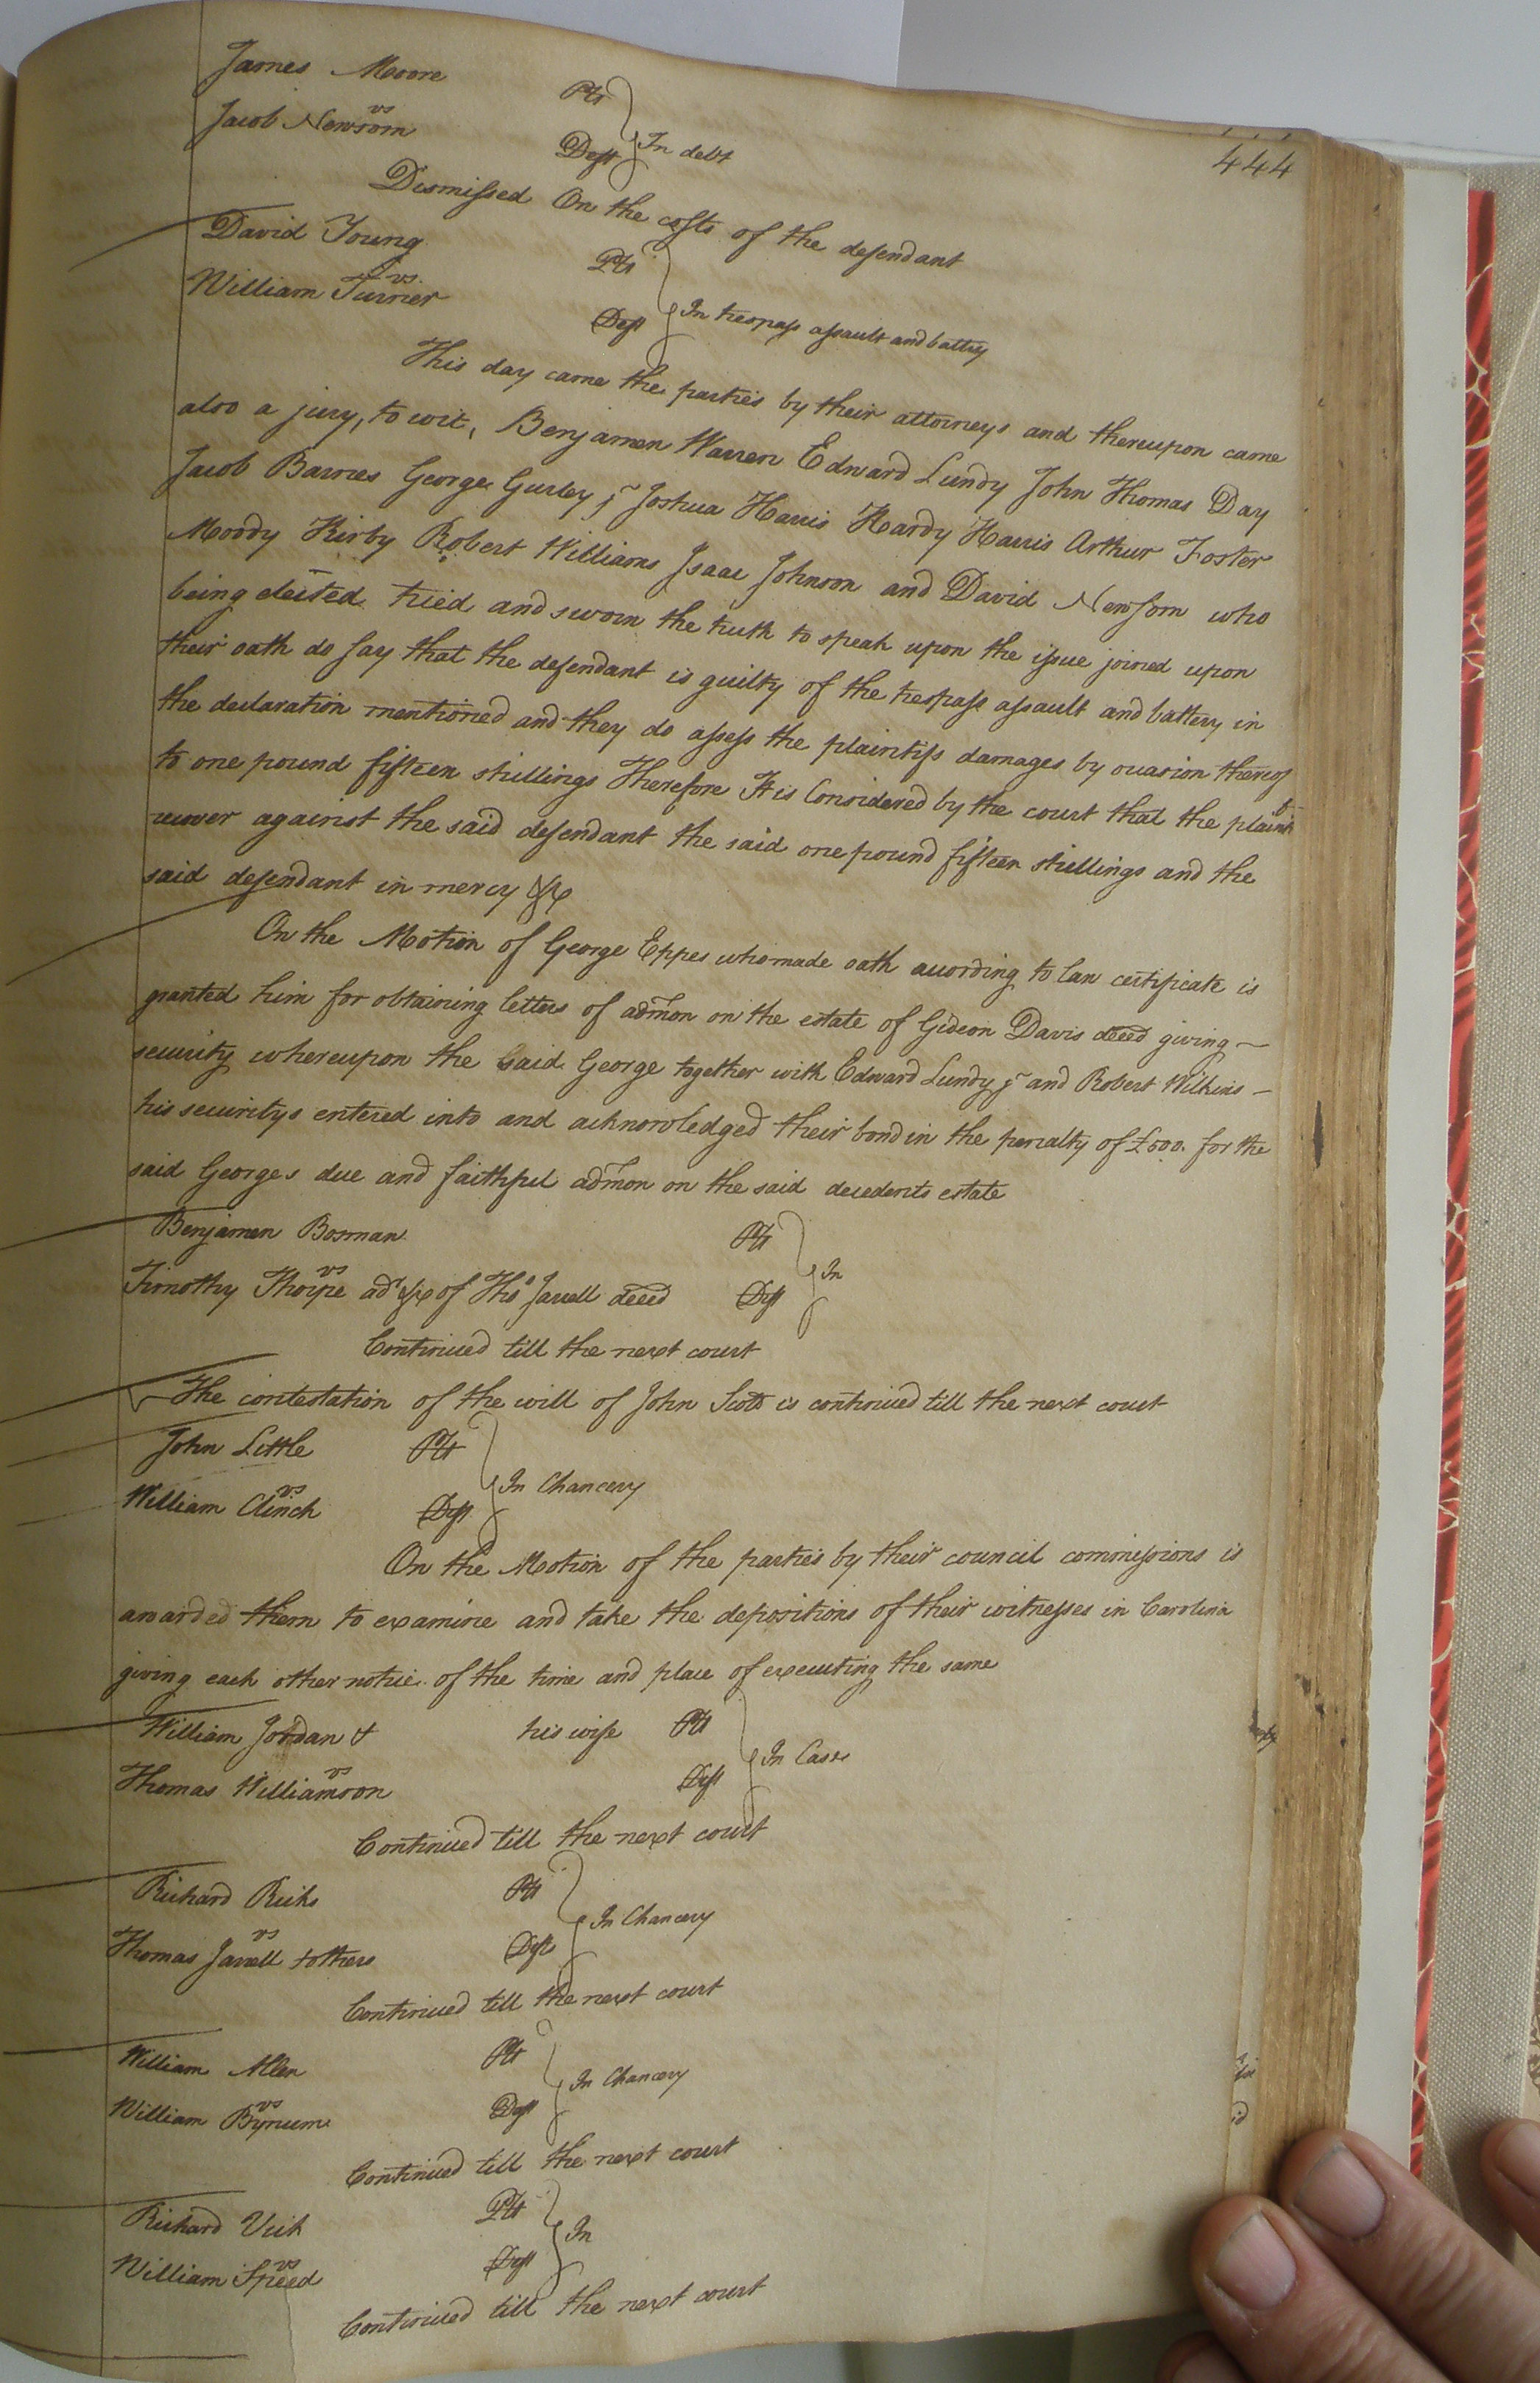 444
James Moore Plt
vs
Jacob Newsom Deft In debt
Dismissed On the costs of the defendant
David Young Plt
vs
William Turner Deft In trespass assault and battery
This day came the parties by their attorneys and thereupon came
also a jury, to wit, Benjamen Warren Edward Lundy John Thomas Day
Jacob Barnes George Gurley jr Joshua Harris Hardy Harris Arthur Foster
Moody Kirby Robert Williams Isaac Johnson and David Newsom who
being elected tried and sworn the truth to speak upon the issue joined upon
their oath do say that the defendant is guilty of the trespass assault and battery in
the declaration mentioned and they do assess the plaintiffs damages by ocasion thereof
to one pound fifteen shillings Therefore It is Considered by the court that the plaint
recover against the said defendant the said one pound fifteen shillings and the
said defendant in mercy &c
On the Motion of George Eppes who made oath according to law certificate is
granted him for obtaining letters of admon on the estate of Gideon Davis deced giving
security whereupon the said George together with Edward Lundy jr and Robert Wilkins
his securitys entered into and acknowledged their bond in the penalty of £500. for the
said Georges due and faithful admon on the said decedents estate
Benjamen Bosman Plt
vs
Timothy Thorpe adr &c of Thos Jarrell deced Deft In
Continued till the next court
The contestation of the will of John Scott is continued till the next court
John Little Plt
vs
William Clinch Deft In Chancery
On the Motion of the parties by their council commissions is
awarded them to examine and take the depositions of their witnesses in Carolina
giving each other notice of the time and place of executing the same
William Jordan & his wife Plt
vs
Thomas Williamson Deft In Case
Continued till the next court
Richard Ricks Plt
vs
Thomas Jarrell & others Deft In Chancery
Continued till the next court
William Allen Plt
vs
William Bynum Deft In Chancery
Continued till the next court
Richard Vick Plt
vs
William Speed Deft In
Continued till the next court